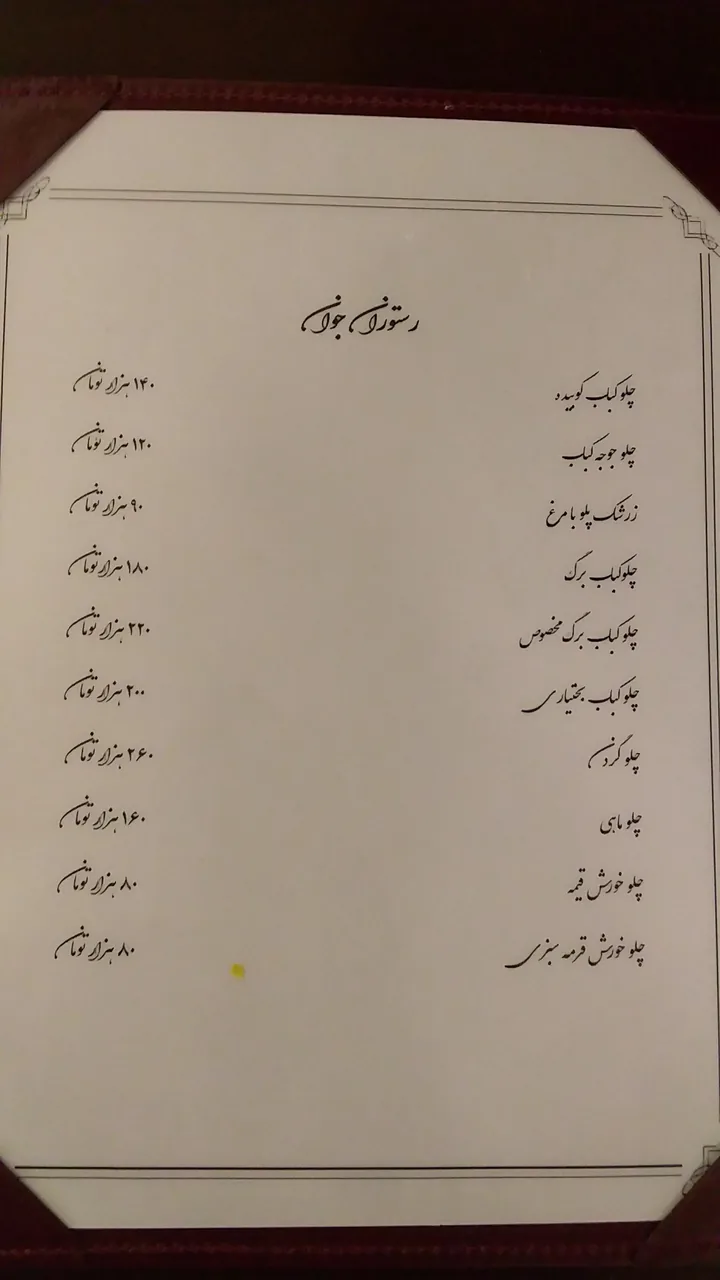 رستوران جوان
چلو کباب کوبیده ۱۴۰ هزار تومان
چلو جوجه کباب ۱۲۰ هزار تومان
زرشک پلو با مرغ ۹۰ هزار تومان
چلو کباب برگ ۱۸۰ هزار تومان
چلو کباب برگ مخصوص ۲۲۰ هزار تومان
چلو کباب بختیاری ۲۰۰ هزار تومان
چلو گردن ۲۶۰ هزار تومان
چلو ماهی ۱۶۰ هزار تومان
چلو خورش قیمه ۸۰ هزار تومان
چلو خورش قرمه سبزی ۸۰ هزار تومان